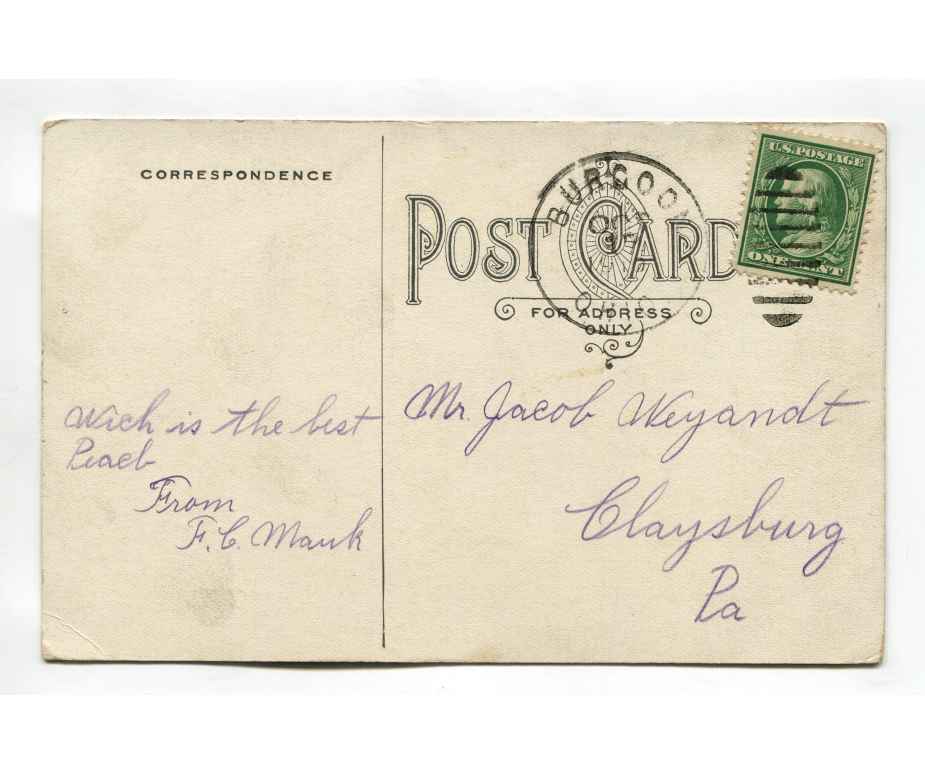 CORRESPONDENCE
Wich is the best
From
F. C. Mauk
POST CARD
FOR ADDRESS
ONLY
U.S. POSTAGE
ONE CENT
Mr Jacob Weyandt
Claysburg
Pa